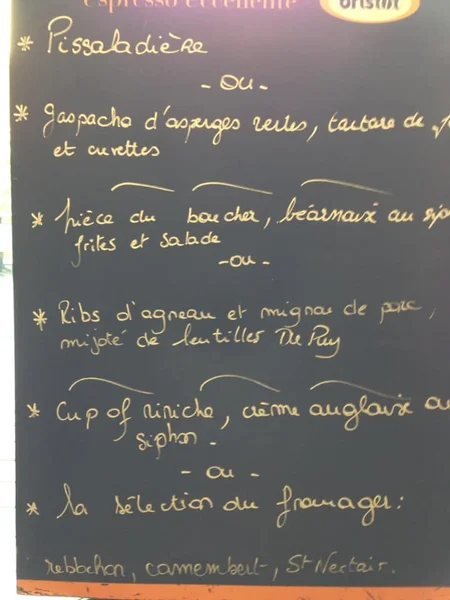 espresso eccellente
bristot
* Pissaladière
- ou -
* gaspacho d'asperges vertes, tartare de
et crevettes
* pièce du boucher, béarnaise au
frites et salade
- ou -
* Ribs d'agneau et mignon de porc,
mijoté de lentilles Du Puy
* Cup of ririche, crème anglaise au
siphon.
- ou -
* la sélection du fromager :
reblochon, camembert, St Nectair.